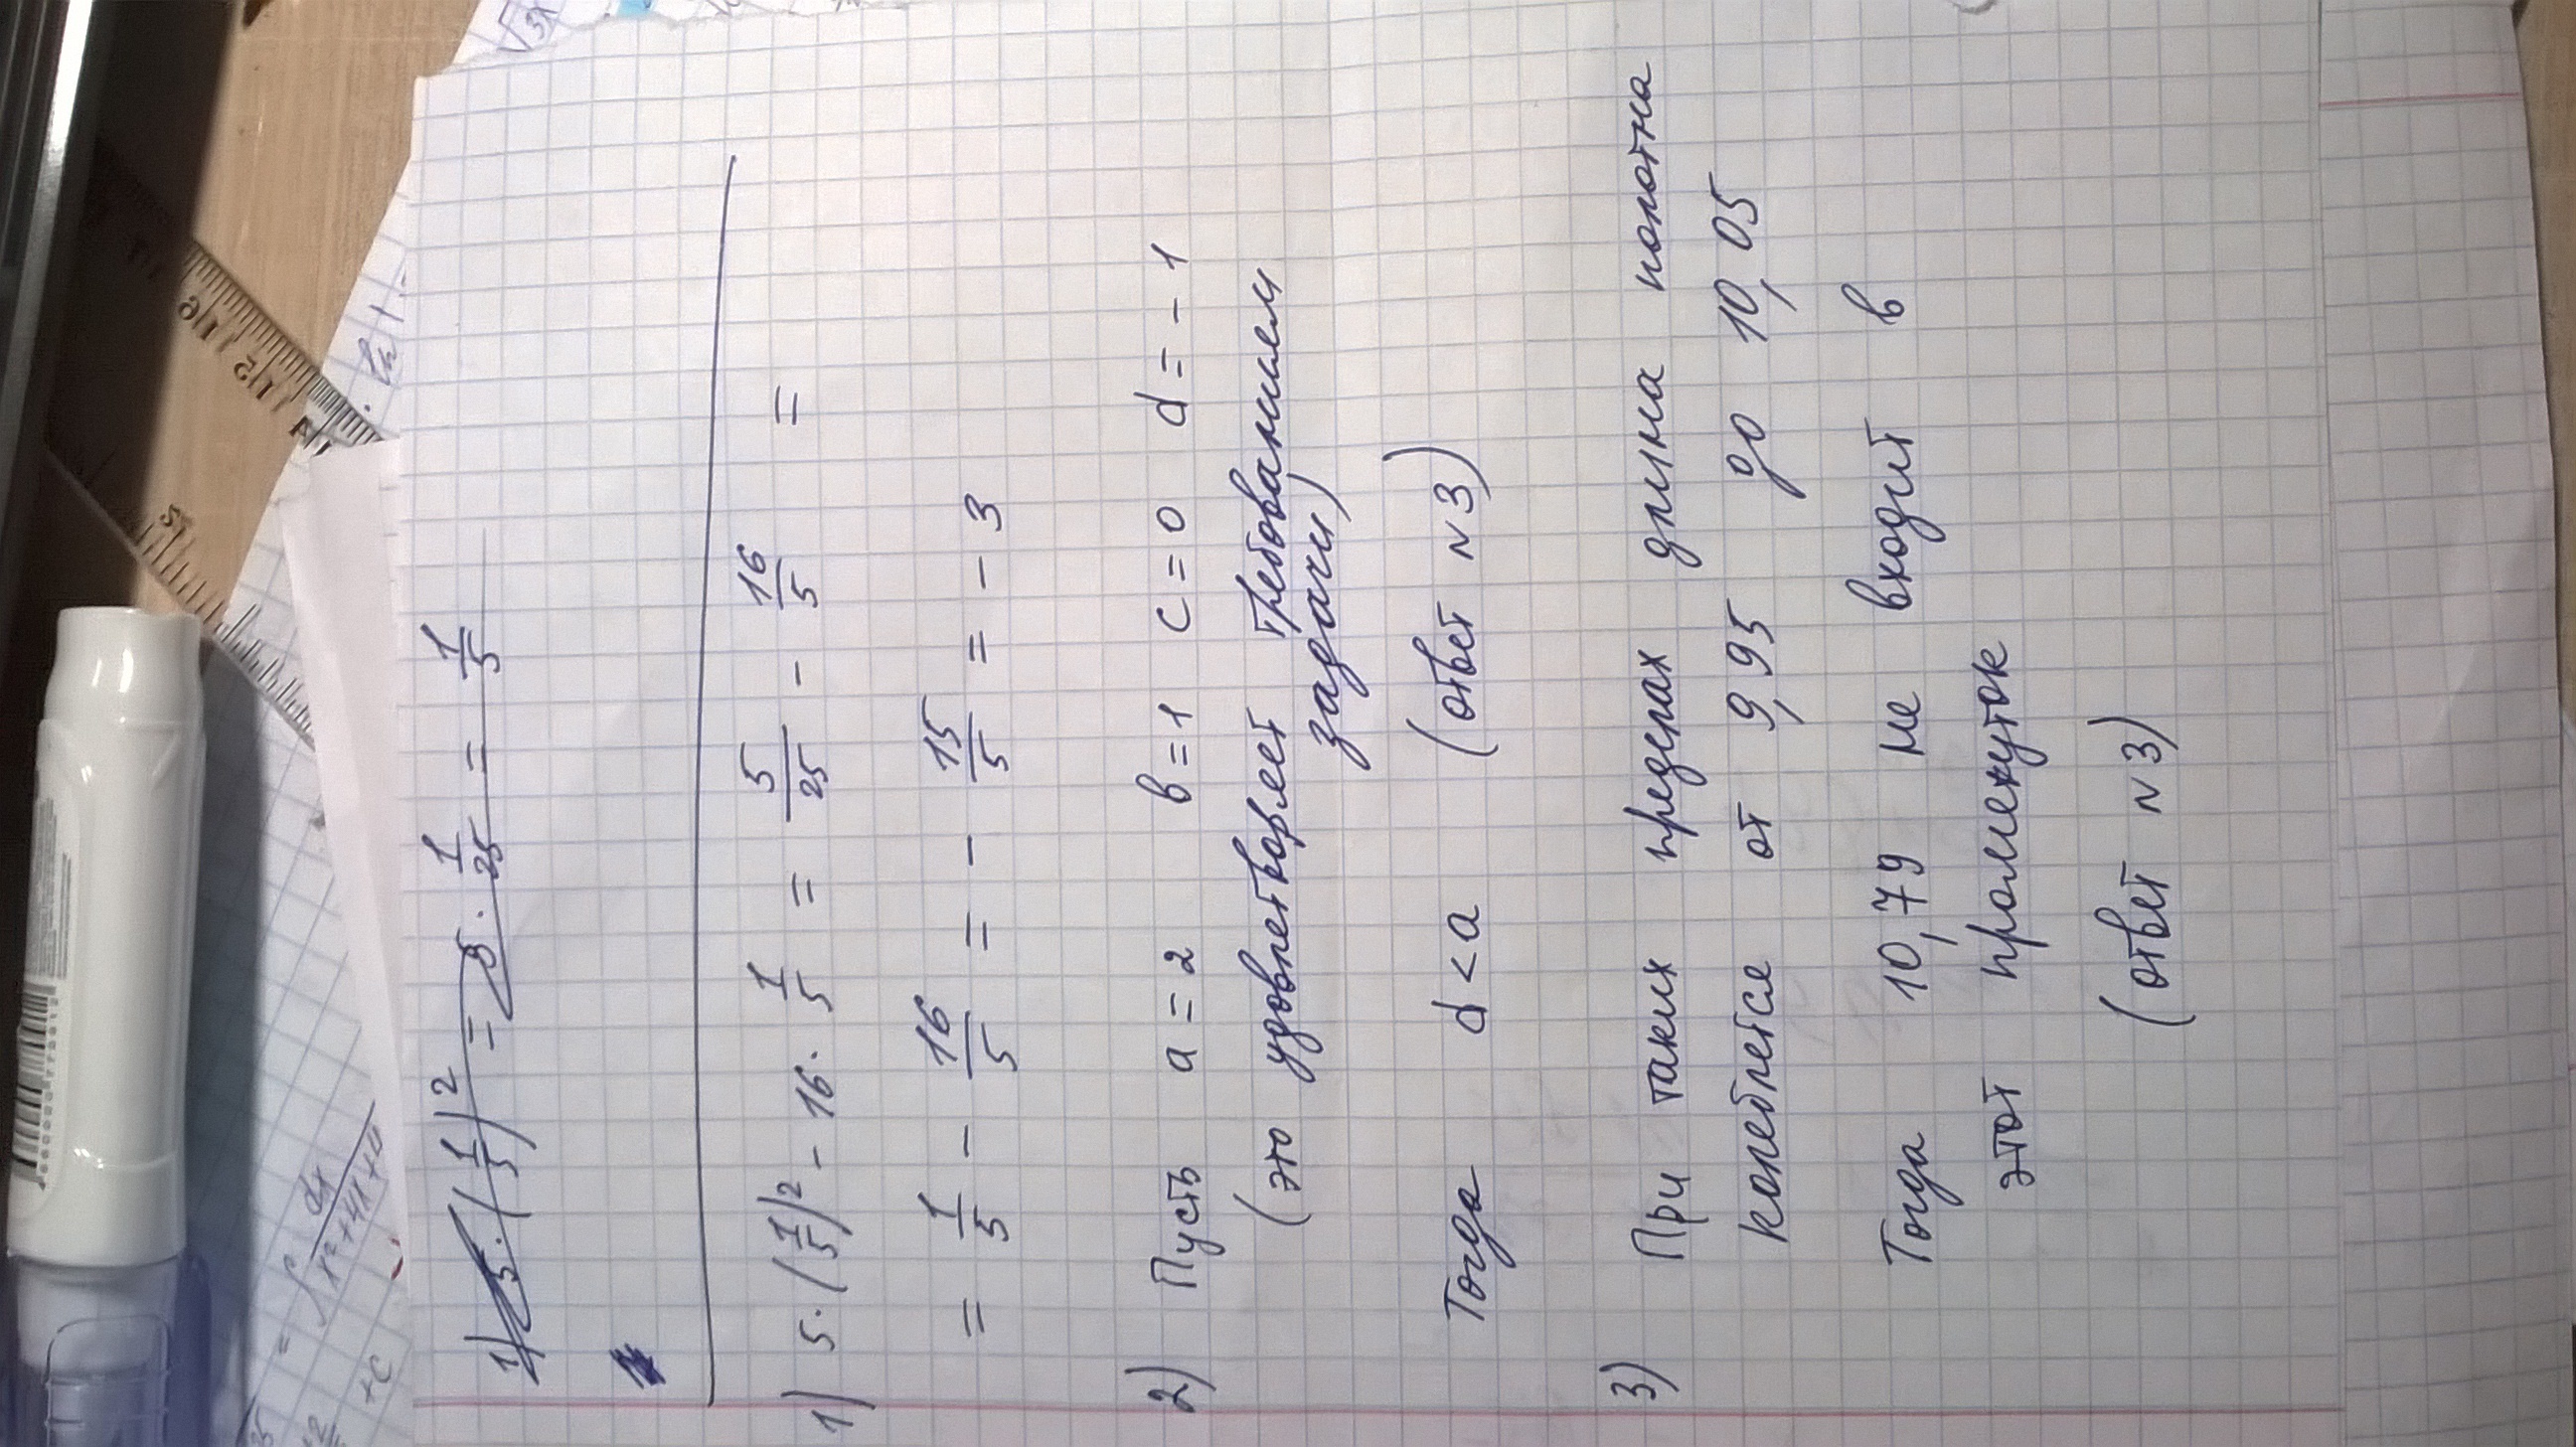 1) 5·(1/5)² = 5·1/25 = 1/5
1) 5·(1/5)² - 16·1/5 = 5/25 - 16/5 =
= 1/5 - 16/5 = - 15/5 = - 3
2) Пусть a = 2 в = 1 c = 0 d = - 1
(это удовлетворяет требованием
задачи)
Тогда d < a (ответ N3)
3) При таких пределах длина полотна
колеблется от 9,95 до 10,05
Тогда 10,79 не входит в
этот промежуток
(ответ N3)
= ∫ dx/x²+4x+
+c